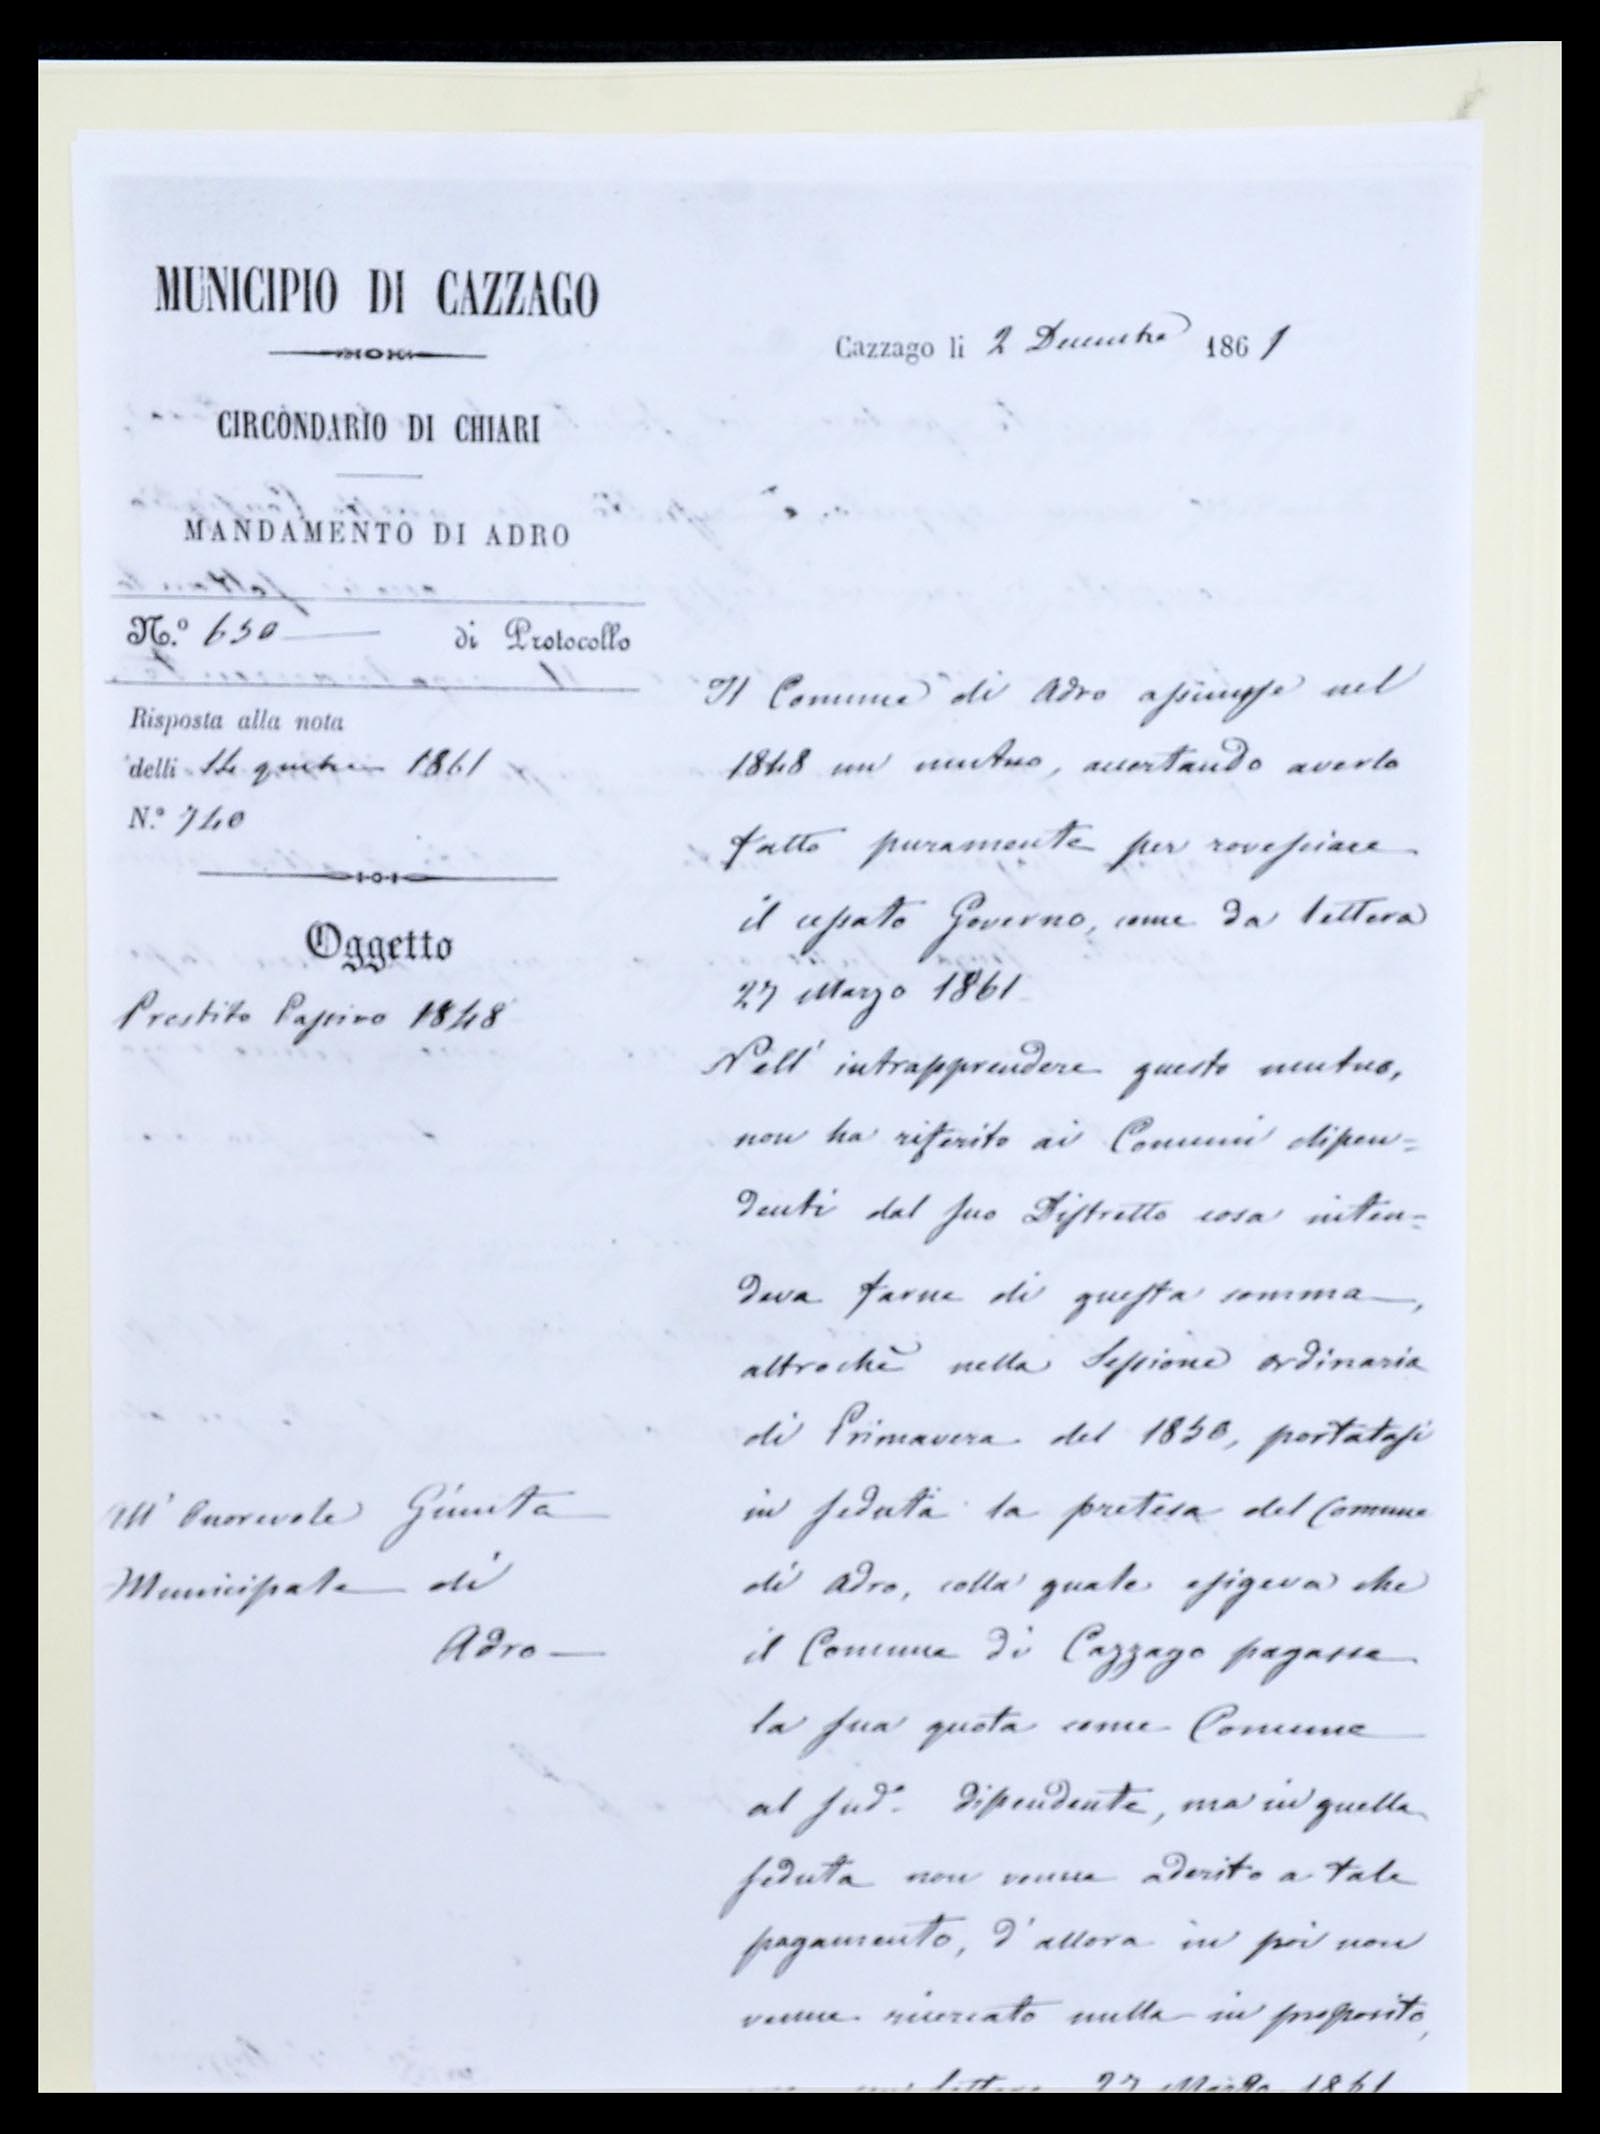 MUNICIPIO DI CAZZAGO
Cazzago li 2 Decembre 1861
CIRCONDARIO DI CHIARI
MANDAMENTO DI ADRO
N.º 650 di Protocollo
Risposta alla nota
delli 14 1861
N.º 740
Oggetto
Prestito Passivo 1848
All' Onorevole Giunta
Municipale di
Adro
Il Comune di Adro assunse nel
1848 un mutuo, accertando averlo
fatto puramente per rovesciare
il cessato Governo, come da lettera
27 Marzo 1861
Nell' intrapprendere questo mutuo,
non ha riferito ai Comuni dipen=
denti dal suo Distretto cosa inten=
deva farne di questa somma,
altrochè nella Sessione ordinaria
di Primavera del 1850, portatasi
in seduta la pretesa del Comune
di Adro, colla quale esigeva che
il Comune di Cazzago pagasse
la sua quota come Comune
al sud.º dipendente, ma in quella
seduta non venne aderito a tale
pagamento, d'allora in poi non
venne ricercato nulla in proposito,
lettera 27 Marzo 1861